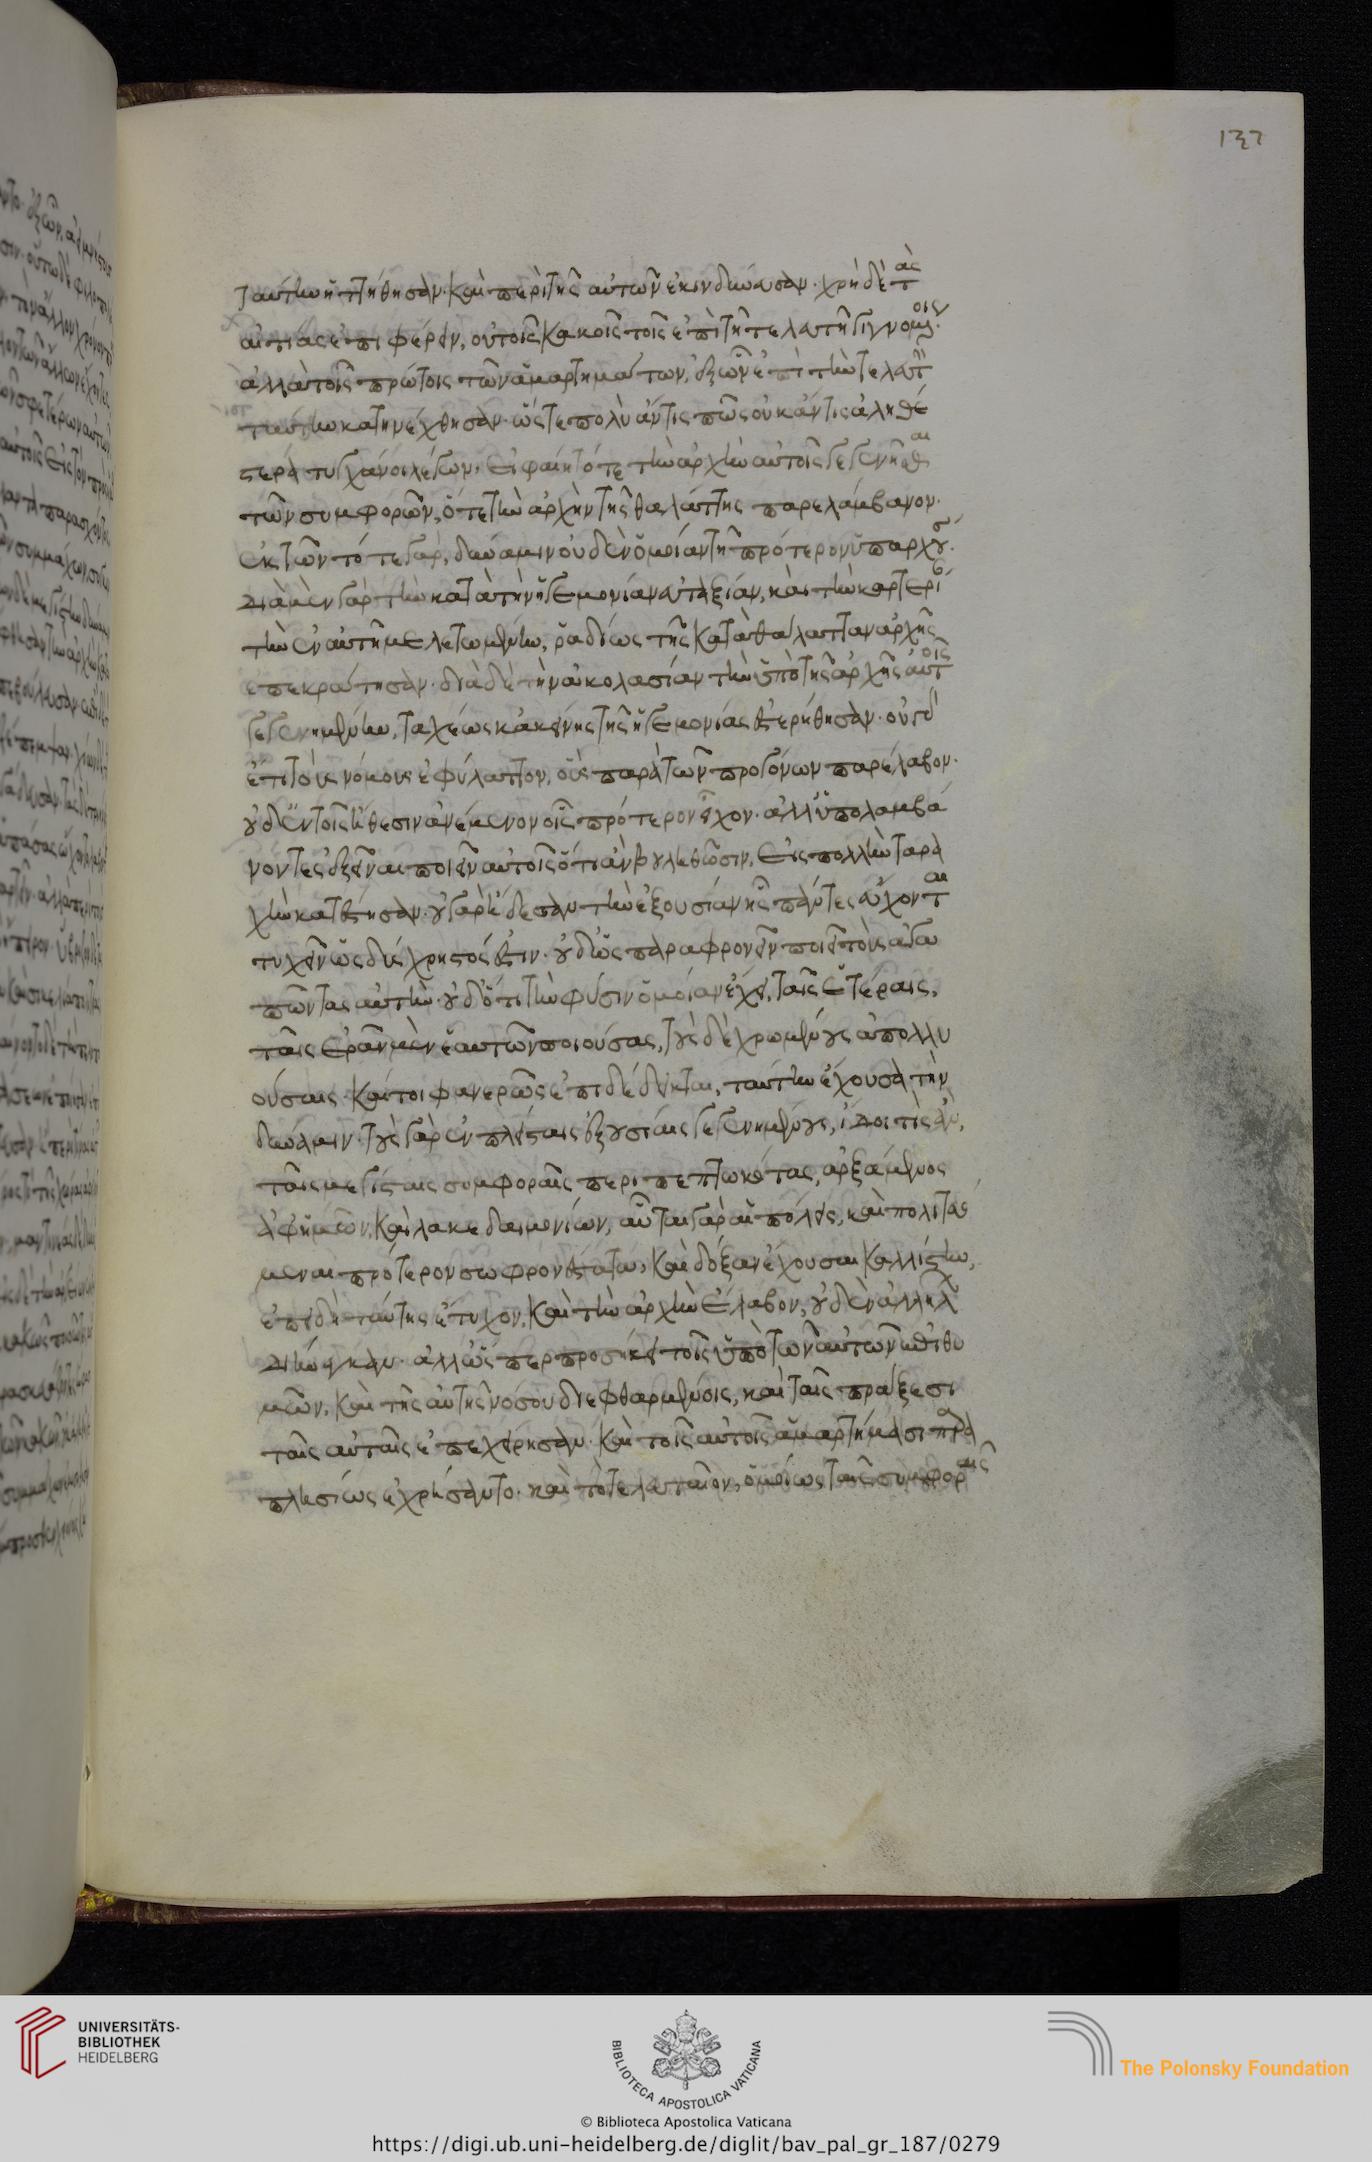 ταύτην ἡττήθησαν· καὶ περὶ τῆς αὐτῶν ἐκινδύνευσαν· χρὴ δὲ τὰς
αἰτίας ἐπιφέρειν, οὐ τοῖς κακοῖς τοῖς ἐπὶ τῆ τελευτῆ γιγνομένοις·
ἀλλὰ τοῖς πρώτοις τῶν ἁμαρτημάτων, ἐξ ὧν ἐπὶ τὴν τελευτὴν
ταύτην κατηνέχθησαν· ὥστε πολὺ ἄν τις πῶς οὐκ ἄν τις ἀληθέ
στερα τυγχάνοι λέγων, εἰ φαίη τότε τὴν ἀρχὴν αὐτοῖς γεγενῆσθαι
τῶν συμφορῶν, ὅτε τὴν ἀρχὴν τῆς θαλάττης παρελάμβανον·
ἐκτῶντό τε γὰρ, δύναμιν οὐδὲν ὁμοίαν τῆ πρότερον ὑπαρχούσ·
διὰ μὲν γὰρ τὴν κατὰ τὴν ἡγεμονίαν εὐταξίαν, καὶ τὴν καρτερί
τὴν ἐν αὐτῆ μελετωμένην, ῥαδίως τῆς κατὰ θάλατταν ἀρχῆς
ἐπεκράτησαν· διὰ δὲ τὴν ἀκολασίαν τὴν ὑπὸ τῆς ἀρχῆς αὐτοῖς
γεγενημένην, ταχέως κἀκείνης τῆς ἡγεμονίας ἐστερήθησαν· οὐ γὰρ
ἔτι τοὺς νόμους ἐφύλαττον, οὓς παρὰ τῶν προγόνων παρέλαβον·
οὐδ' ἐν τοῖς ἤθεσιν ἀνέμενον οἷς πρότερον εἶχον· ἀλλ' ὑπολαμβά
νοντες ἐξεῖναι ποιεῖν αὐτοῖς ὅ τι ἂν βουληθῶσιν, εἰς πολλὴν ταρα
χὴν κατέστησαν· οὐ γὰρ ἤδεσαν τὴν ἐξουσίαν ἧς πάντες εὔχονται
τυχεῖν ὡς δύσχρηστός ἐστιν· οὐδ' ὡς παραφρονεῖν ποιεῖ τοὺς ἀγα
πῶντας αὐτὴν· οὐδ' ὅτι τὴν φύσιν ὁμοίαν ἔχει, ταῖς ἑταίραις,
ταῖς ἐρᾶν μὲν ἑαυτῶν ποιούσαις, τοὺς δὲ χρωμένους ἀπολλυ
ούσαις· καίτοι φανερῶς ἐπιδέδεικται, ταύτην ἔχουσα τὴν
δύναμιν· τοὺς γὰρ ἐν πλείσταις ἐξουσίαις γεγενημένους, ἴδοι τις ἂν,
ταῖς μεγίσταις συμφοραῖς περιπεπτωκότας, ἀρξάμενος
ἀφ' ἡμῶν, καὶ λακεδαιμονίων, αὗται γὰρ αἱ πόλεις, καὶ πολιτευό
μεναι πρότερον σωφρονέστατα, καὶ δόξαν ἔχουσαι καλλίστην,
ἐπειδὴ ταύτης ἔτυχον, καὶ τὴν ἀρχὴν ἔλαβον, οὐδὲν ἀλλήλων
διήνεγκαν· ἀλλ' ὥσπερ προσήκει τοῖς ὑπὸ τῶν αὐτῶν ἐπιθυ
μιῶν, καὶ τῆς αὐτῆς νόσου διεφθαρμένοις, καὶ ταῖς πράξεσι
ταῖς αὐταῖς ἐπεχείρησαν· καὶ τοῖς αὐτοῖς ἁμαρτήμασι παρα
πλησίως ἐχρήσαντο· καὶ τὸ τελευταῖον, ὁμοίως ταῖς συμφοραῖς
137
UNIVERSITÄTS-
BIBLIOTHEK
HEIDELBERG
BIBLIOTECA APOSTOLICA VATICANA
© Biblioteca Apostolica Vaticana
The Polonsky Foundation
https://digi.ub.uni-heidelberg.de/diglit/bav_pal_gr_187/0279